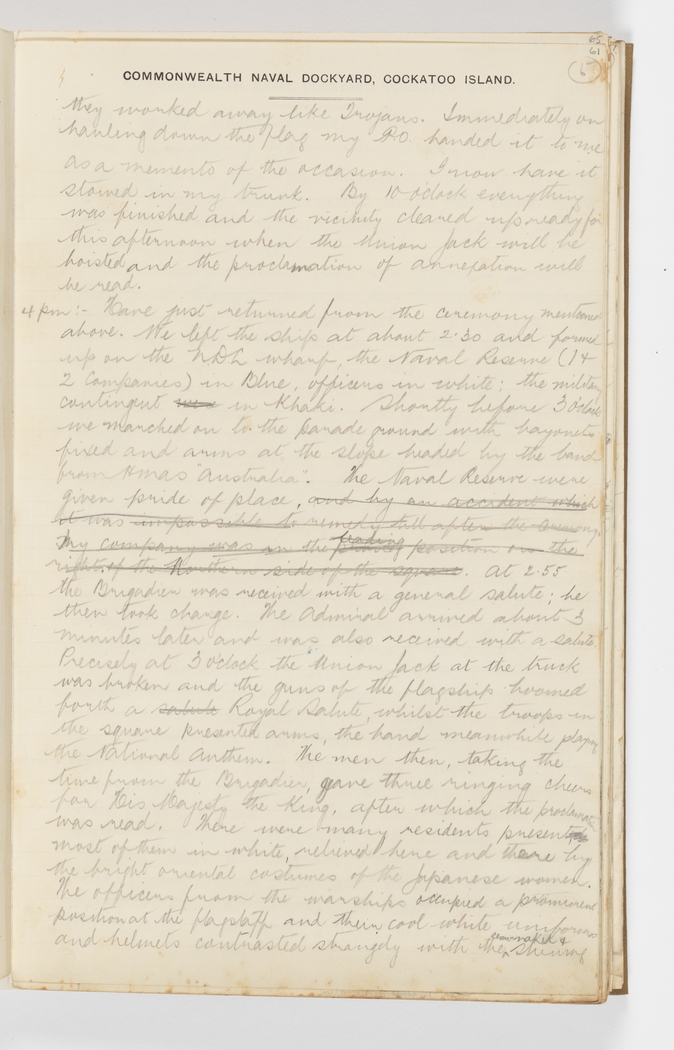 65
61
6
COMMONWEALTH NAVAL DOCKYARD, COCKATOO ISLAND.
they worked away like Trojans. Immediately on
hauling down the flag my P.O. handed it to me
as a memento of the occasion. I now have it
stowed in my trunk. By 10 o'clock everything
was finished and the vicinity cleared up ready for
this afternoon when the Union Jack will be
hoisted and the proclamation of annexation will
be read.
4 pm:- Have just returned from the ceremony mentioned
above. We left the ship at about 2.30 and formed
up on the NDL wharf, the Naval Reserve (1 &
2 Companies) in Blue, officers in white; the military
contingent were in Khaki. Shortly before 3 o'clock
we marched on to the parade ground with bayonets
fixed and arms at the slope headed by the band
from HMAS "Australia". The Naval Reserve were
given pride of place, and by an accident which
it was impossible to remedy till after the ceremony,
my company was in the leading position on the
right of the Northern side of the square. At 2.55
the Brigadier was received with a general salute; he
then took charge. The Admiral arrived about 3
minutes later and was also received with a salute.
Precisely at 3 o'clock the Union Jack at the truck
was broken and the guns of the flagship boomed
forth a salute Royal Salute, whilst the troops in
the square presented arms, the band meanwhile playing
the National Anthem. The men then, taking the
time from the Brigadier, gave three ringing cheers
for His Majesty the King, after which the proclamation
was read. There were many residents present,
most of them in white, relieved here and there by
the bright oriental costumes of the Japanese women.
The officers from the warships occupied a prominent
position at the flagstaff and their cool white uniforms
and helmets contrasted strangely with the seminaked & shining